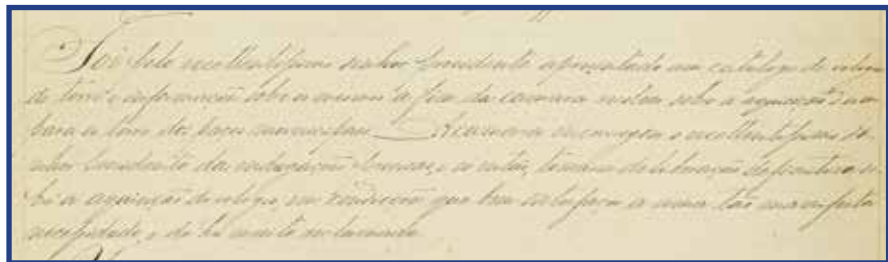 Foi pelo excellentissimo senhor presidente apresentado um catalogo de relogios
de torre e informações sobre o mesmo a fim da camara resolver sobre a acquisição d'um
para a torre dos paços municipaes. A camara encarregou o excellentissimo se-
nhor presidente das indagações precisas, e só então, tomaria deliberação definitiva so-
bre a acquisição do relogio, em condições que bem satisfaça a uma tão manifesta
necessidade, e de ha muito reclamada.